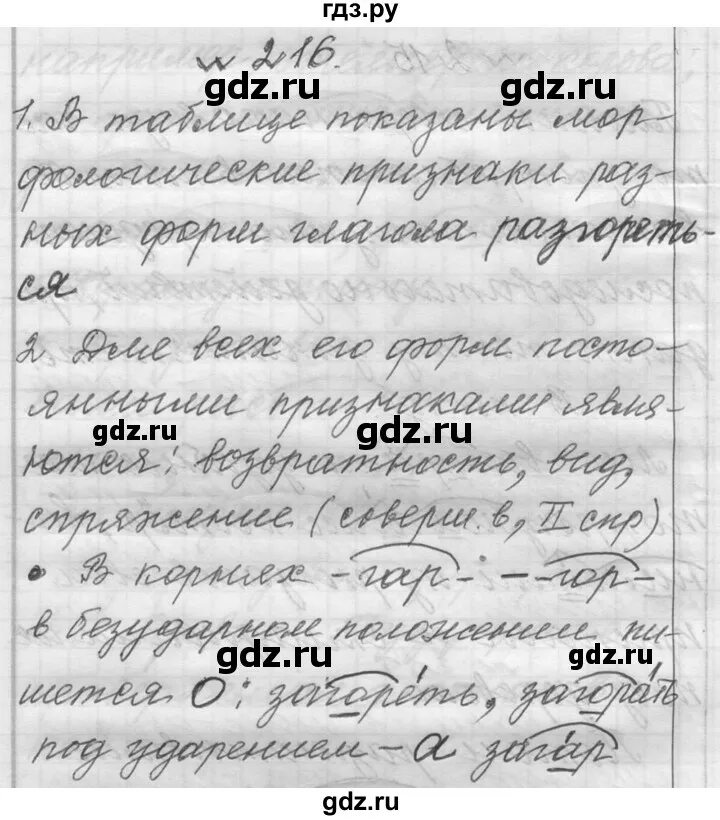 гдз.ру
№ 216.
gdz.ru
1. В таблице показаны мор-
фологические признаки раз-
gdz.ru
gdz.ru
ных форм глагола разгореть-
ся
gdz.ru
2. Для всех его форм посто-
янными признаками явля-
gdz.ru
gdz.ru
ются: возвратность, вид,
спряжение (соверш. в, II спр)
gdz.ru
• В корнях -гар- - -гор-
в безударном положении пи-
gdz.ru
gdz.ru
шется О: загоре́ть, загора́ть
под ударением - а зага́р
gdz.ru